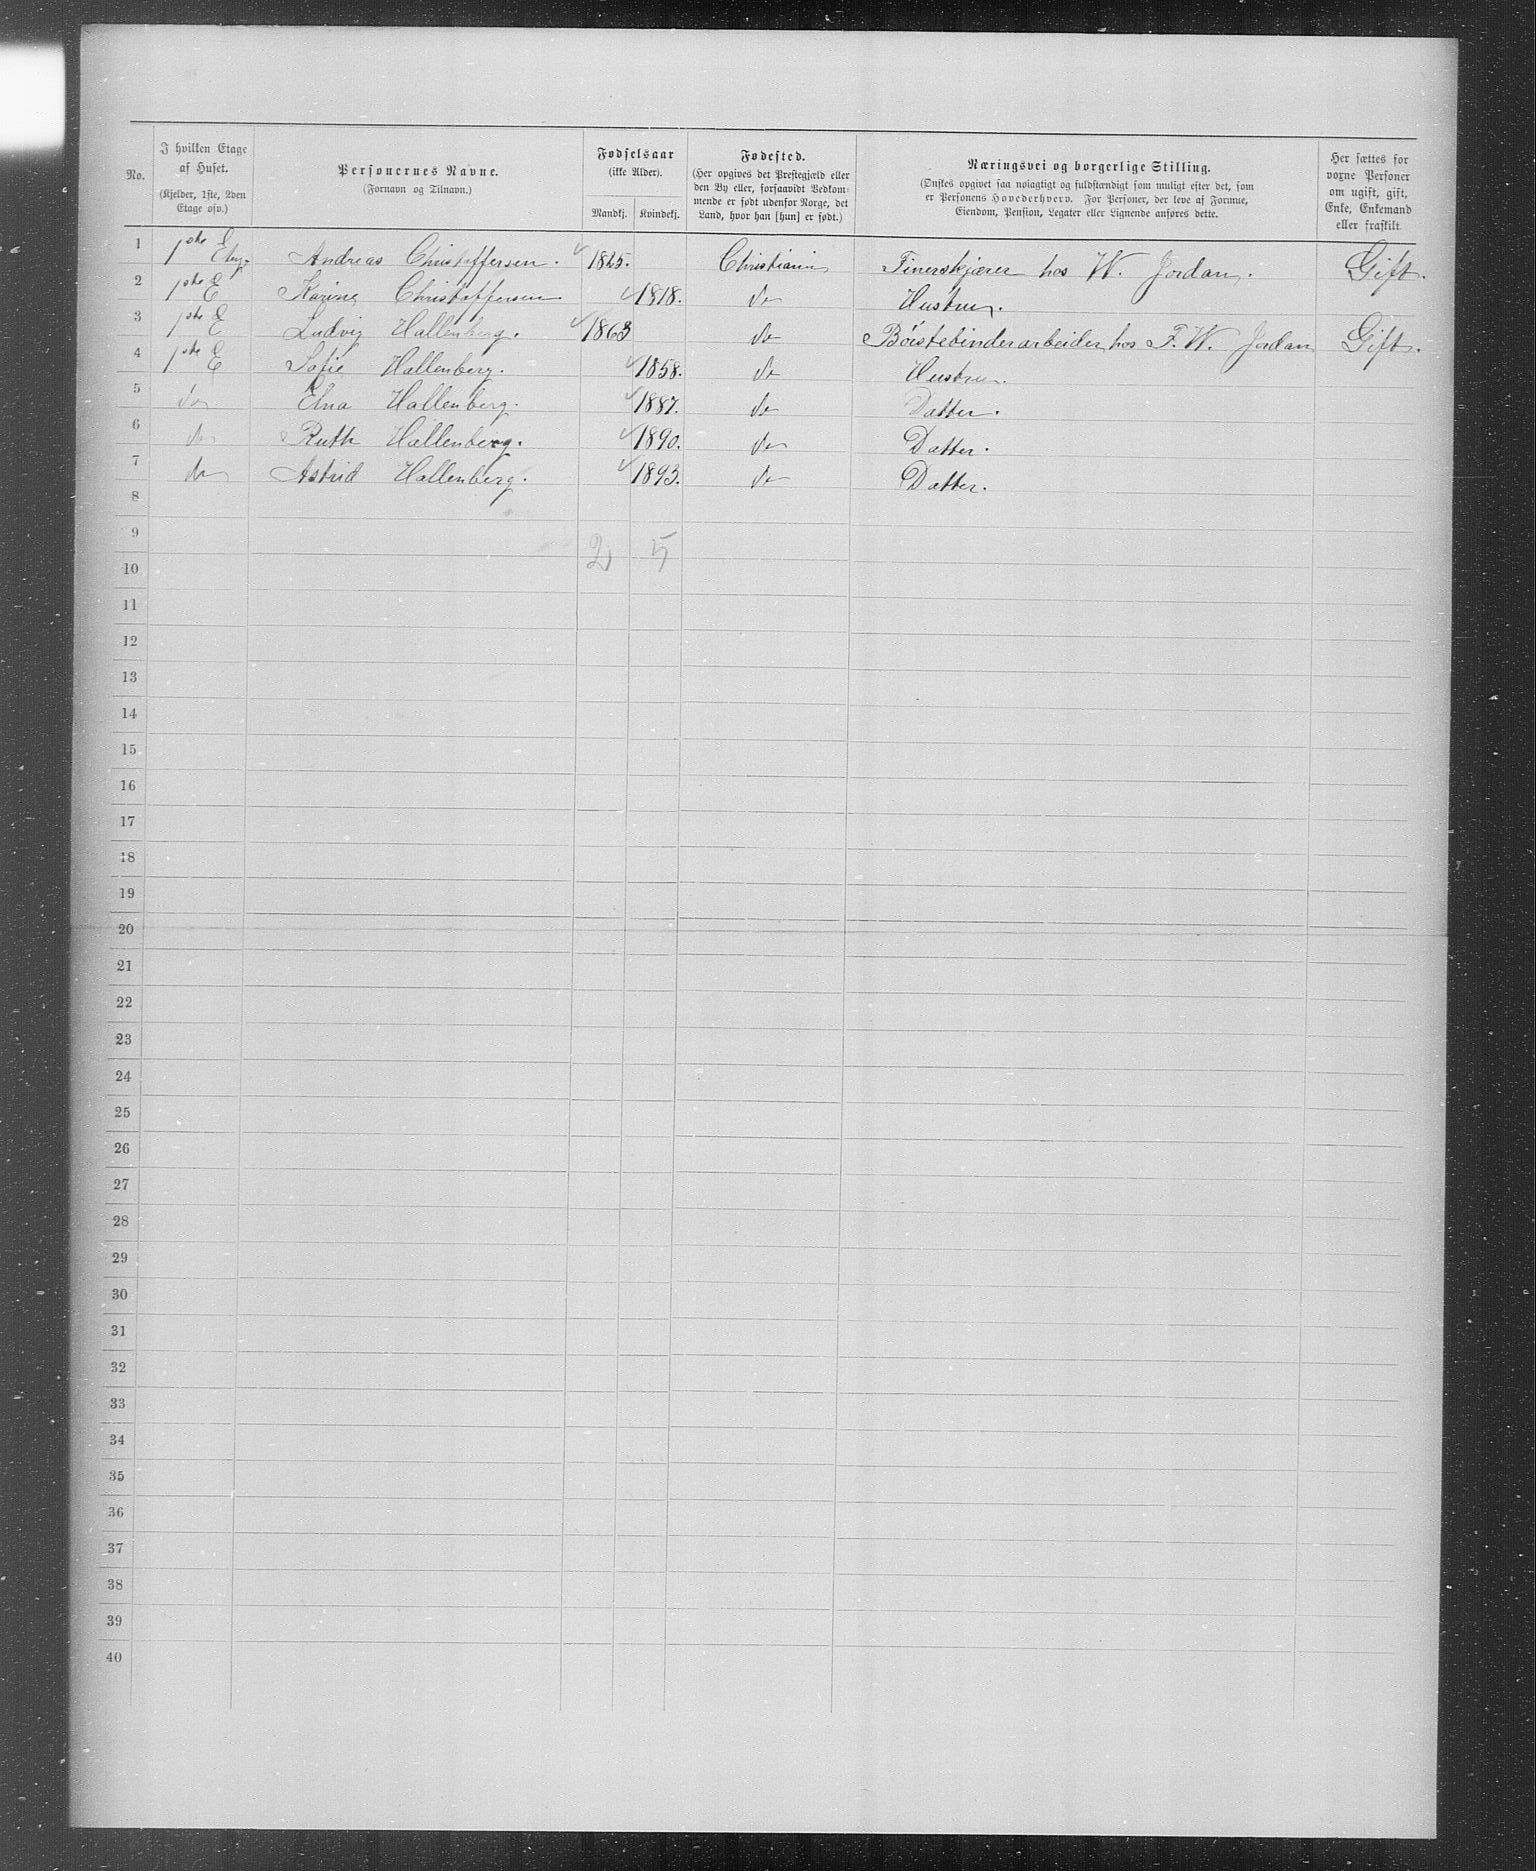 No. | I hvilken Etage af Huset. (Kjelder, 1ste, 2den Etage osv.) | Personernes Navne. (Fornavn og Tilnavn.) | Fødselsaar (ikke Alder). Mandkj. | Kvindekj. | Fødested. (Her opgives det Prestegjæld eller den By eller, forsaavidt Vedkommende er født udenfor Norge, det Land, hvor han [hun] er født.) | Næringsvei og borgerlige Stilling. (Ønskes opgivet saa nøiagtigt og fuldstændigt som muligt efter det, som er Personens Hovederhverv. For Personer, der leve af Formue, Eiendom, Pension, Legater eller Lignende anføres dette. | Her sættes for voxne Personer om ugift, gift, Enke, Enkemand eller fraskilt
1 | 1ste E | Andreas Christoffersen. | 1825. | | Christiania | Finerskjærer hos W. Jordan. | Gift.
2 | 1ste E | Karine Christoffersen | | 1818. | do | Hustru.
3 | 1ste E | Ludvig Hallenberg. | 1863 | | do | Børstebinderarbeider hos F. W. Jordan | Gift.
4 | 1ste E | Sofie Hallenberg. | | 1858. | do | Hustru.
5 | do | Elna Hallenberg. | | 1887. | do | Datter.
6 | do | Ruth Hallenberg. | | 1890. | do | Datter.
7 | do | Astrid Hallenberg. | | 1893. | do | Datter.
8
9 | | | 2 | 5
10
11
12
13
14
15
16
17
18
19
20
21
22
23
24
25
26
27
28
29
30
31
32
33
34
35
36
37
38
39
40